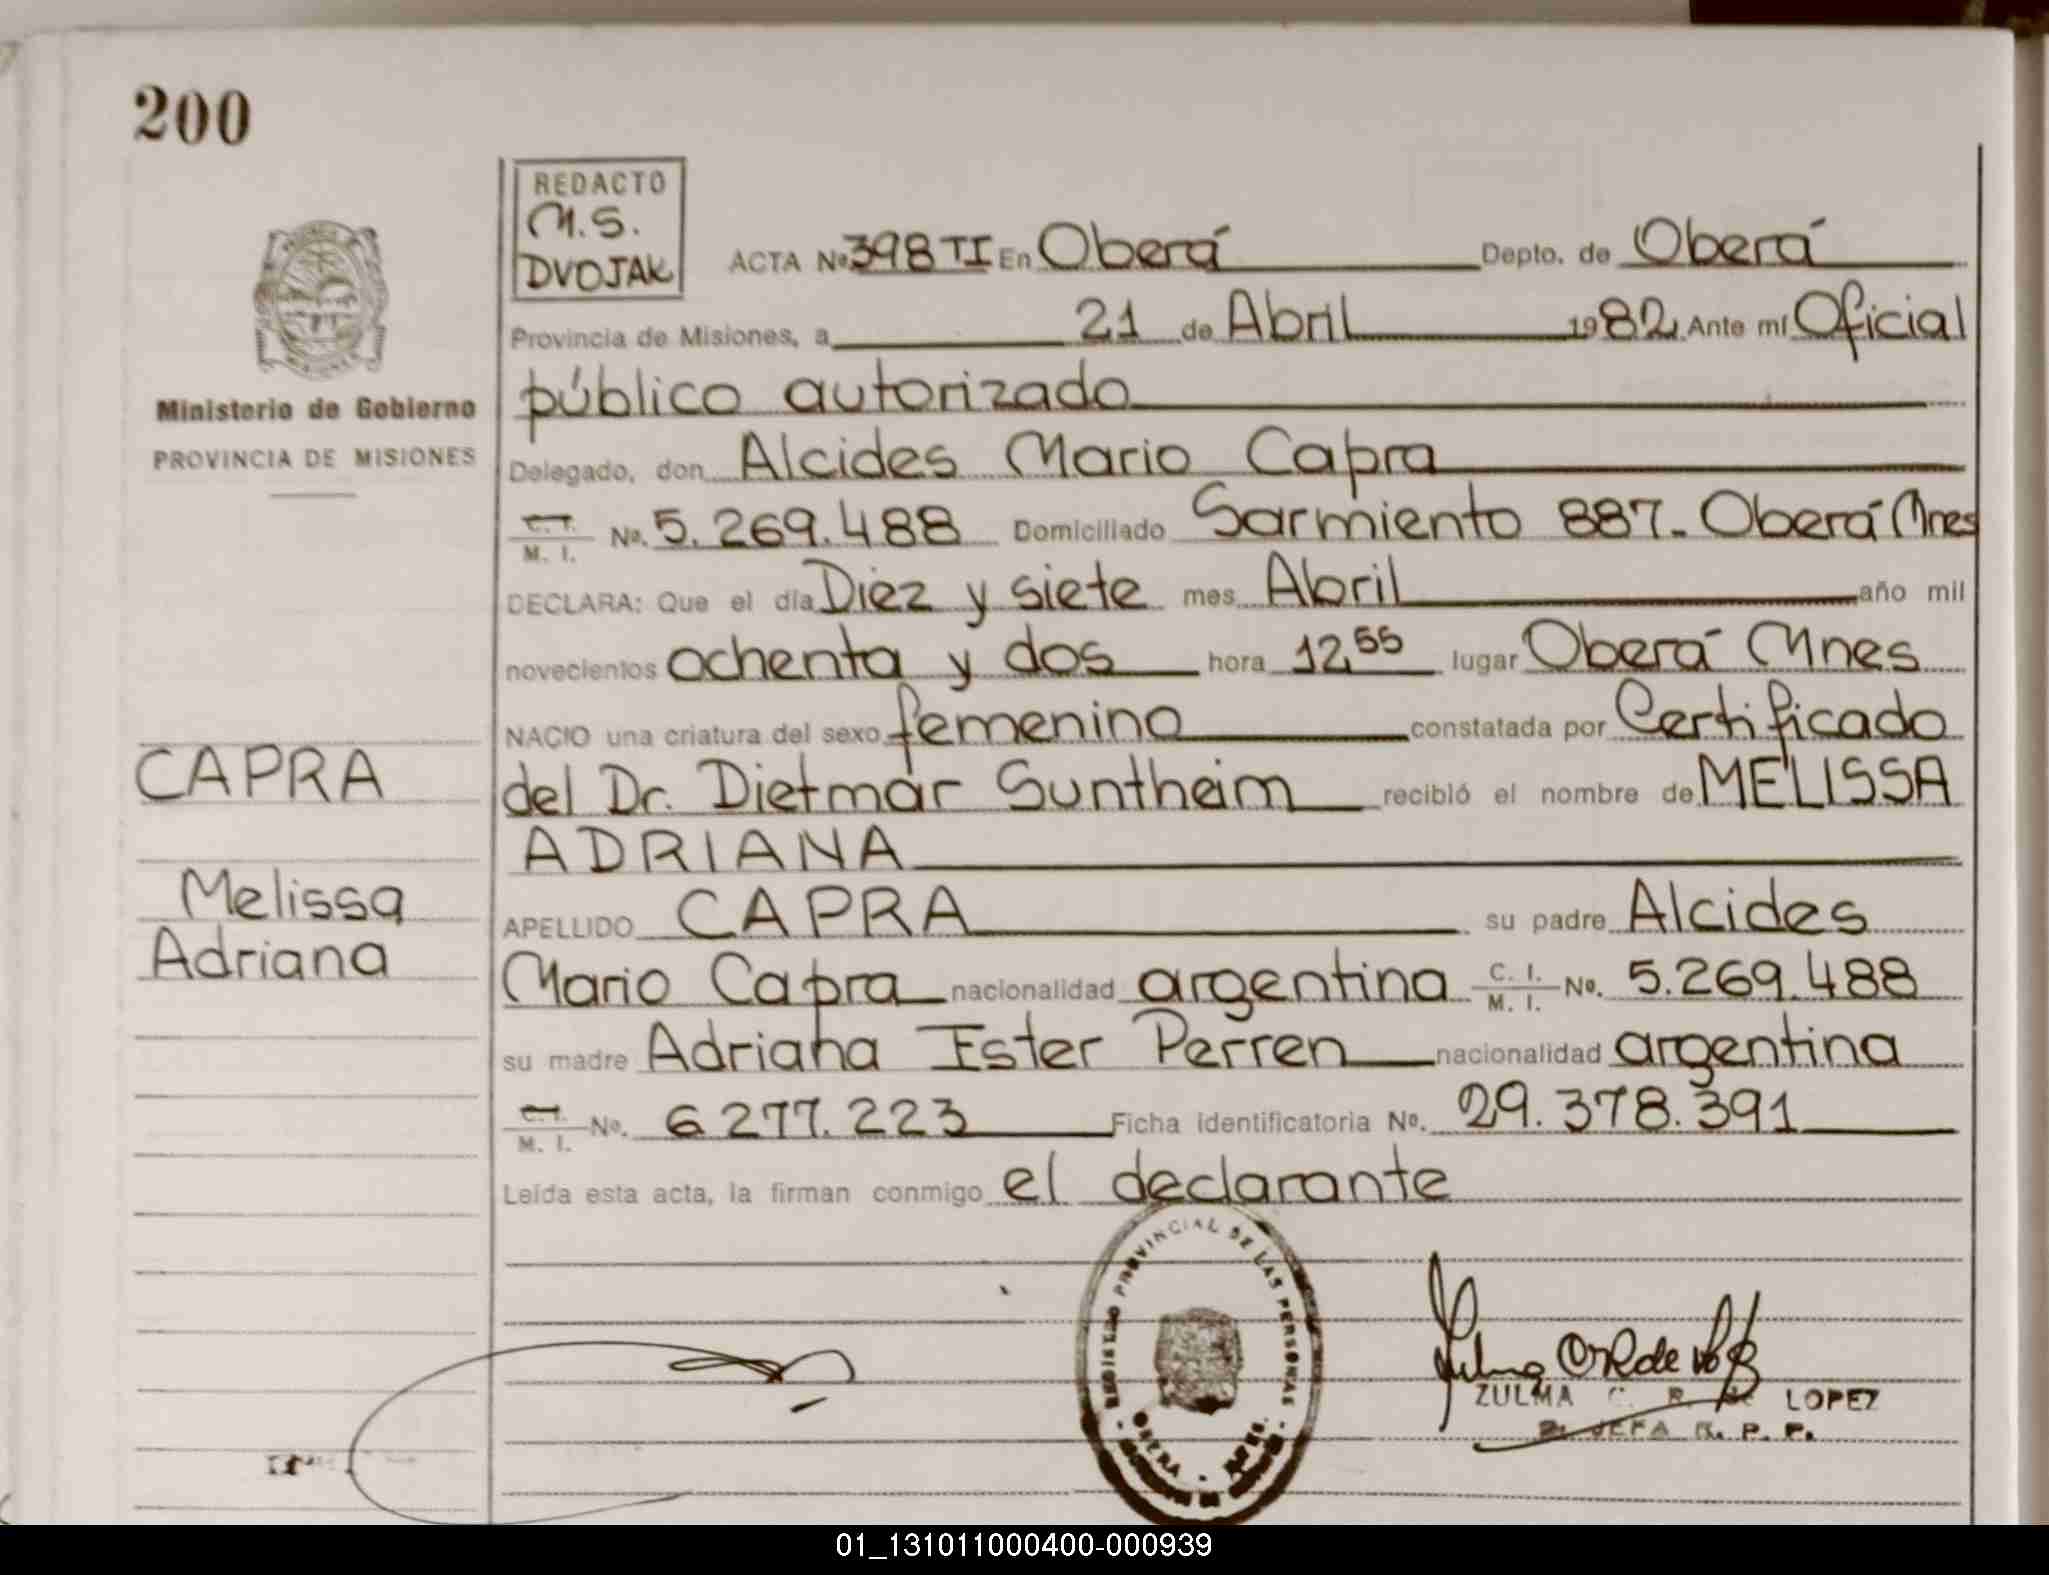 200
REDACTO
M.S.
DVOJAK
ACTA Nº 398 TI En Oberá Depto. de Oberá
Provincia de Misiones, a 21 de Abril 1982 Ante mí Oficial
público autorizado
Delegado, don Alcides Mario Capra
C. I. M. I. Nº. 5.269.488 Domiciliado Sarmiento 887- Oberá Mnes
DECLARA: Que el día Diez y siete mes Abril año mil
novecientos ochenta y dos hora 12,55 lugar Oberá Mnes
NACIO una criatura del sexo femenino constatada por Certificado
del Dr. Dietmar Suntheim recibió el nombre de MELISSA
ADRIANA
APELLIDO CAPRA su padre Alcides
Mario Capra nacionalidad argentina C. I. M. I. Nº. 5.269.488
su madre Adriana Ester Perren nacionalidad argentina
C. I. M. I. Nº. 6.277.223 Ficha identificatoria Nº. 29.378.391
Leída esta acta, la firman conmigo el declarante
Ministerio de Gobierno
PROVINCIA DE MISIONES
CAPRA
Melissa
Adriana
REGISTRO PROVINCIAL DE LAS PERSONAS
OBERA
ZULMA C. R. LOPEZ
JEFA R. P. P.
01_131011000400-000939